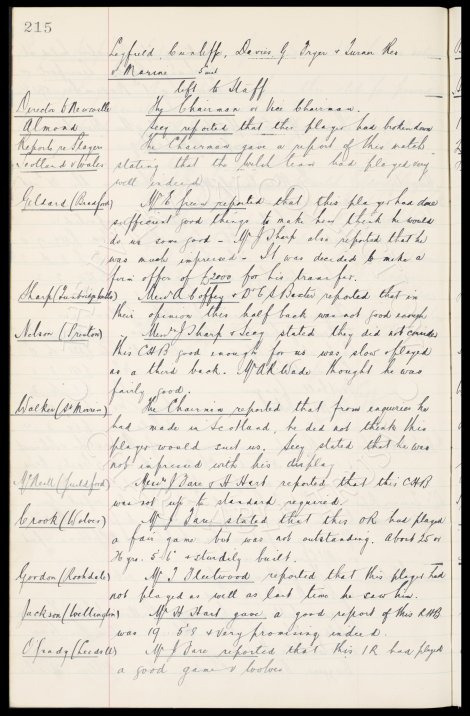 215
Legfield, Cunliffe, Davies G. Fryer & Turner Res
& Marine 5 met
left to Staff
Director to Newcastle The Chairman or Vice Chairman.
Almond Secy reported that this player had broken down
Reports re Players The Chairman gave a report of this match
Scotland v Wales stating that the Welsh team had played very
well indeed
Geldard (Bradford) Mr E Green reported that this player had done
sufficient good things to make him think he would
do us some good - Mr J Sharp also reported that he
was much impressed - It was decided to make a
firm offer of £2000 for his transfer.
Sharp (Tunbridge Wells) Messrs A Coffey & Dr C S Baxter reported that in
their opinion this half back was not good enough
Nelson (Preston) Messrs J Sharp & Secy stated they did not consider
this CHB good enough for us was slow & played
as a third back. Mr A R Wade thought he was
fairly good.
Walker (St Mirren) The Chairman reported that from enquiries he
had made in Scotland, he did not think this
player would suit us, Secy stated that he was
not impressed with his display
McNeill (Guildford) Messrs J Fare & H Hart reported that this CHB
was not up to standard required.
Crook (Wolves) Mr J Fare stated that this OR had played
a fair game but was not outstanding. About 25 or
26 yrs. 5' 6" & sturdily built.
Gordon (Rochdale) Mr T Fleetwood reported that this player had
not played as well as last time he saw him.
Jackson (Wellington) Mr H Hart gave a good report of this RHB
was 19. 5' 8 & very promising indeed.
O'Grady (Leeds U) Mr J Fare reported that this IR had played
a good game v Wolves